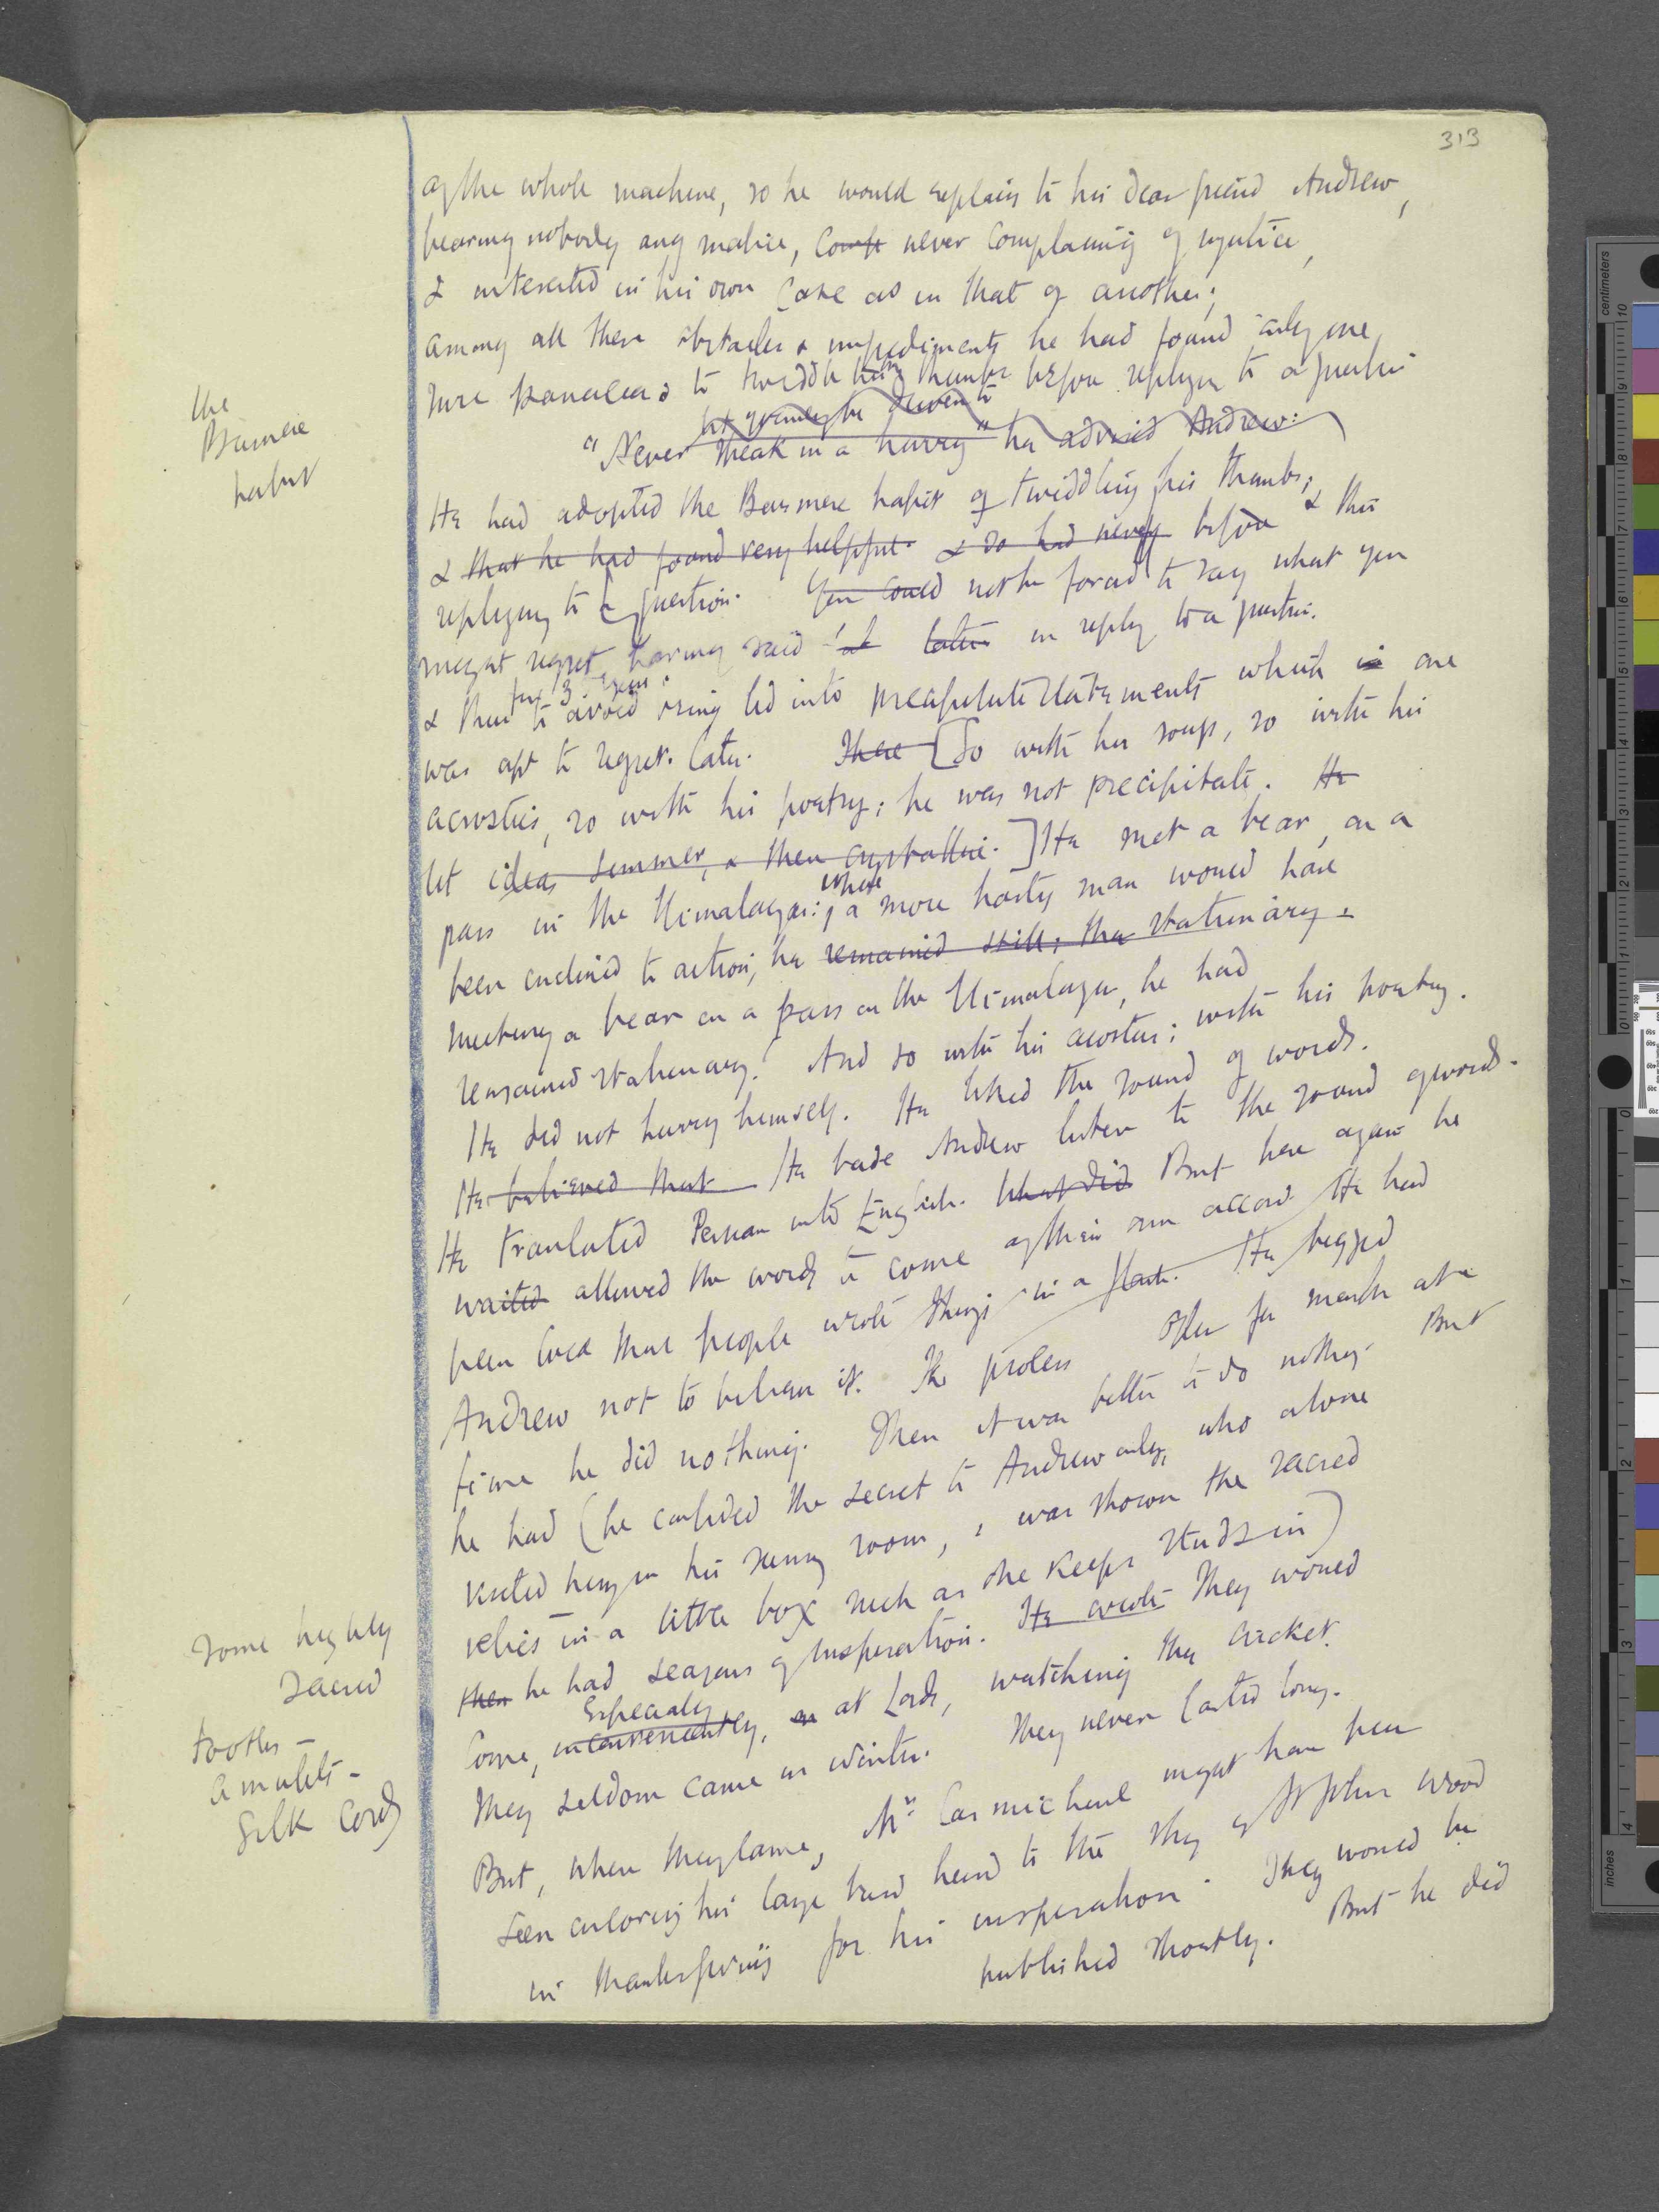 313
of the whole machine, so he would explain to his dear friend Andrew,
bearing nobody any malice, never complaining of injustice,
& interested in his own case as in that of another;
among all these obstacles & impediments he had found only one
sure panacea: to twiddle thumbs before replying to a question
"Never speak in a hurry" he advised Andrew:
the
Burmese
habit
He had adopted the Burmese habit of twiddling his thumbs;
& that he had found very helpful. & so had never before & this
replying to a question. You could not be forced to say what you
might regret having said later in reply to a question.
& thus to avoid being led into precipitate statements which is one
was apt to regret later. There [So with his soup, so with his
acrostics, so with his poetry; he was not precipitate. He
let ideas simmer, & then crystallise.] He met a bear, on a
pass in the Himalayas; where a more hasty man would have
been inclined to action, he remained still; the stationary.
Meeting a bear on a pass in the Himalayas, he had
remained stationary. And so with his acrostics; with his poetry.
He did not hurry himself. He liked the sound of words.
He believed that He bade Andrew listen to the sound of words.
He translated Persian into English. What did But here again he
waited allowed the words to come of their own accord He had
been told that people wrote things in a flash. He begged
Andrew not to believe it. The process Often for months at a
time he did nothing. Then it was better to do nothing. But
he had (he confided the secret to Andrew only, who alone
visited him in his room, & was shown the sacred
relics in a little box such as one keeps studs in)
some highly
sacred
tooths -
amulets -
silk cords
then he had seasons of inspiration. He wrote They would
come, inconveniently, especially at Lords, watching the cricket.
They seldom came in winter. They never lasted long.
But, when they came, Mr Carmichael might have been
seen his large head to the sky of St Johns Wood
in thanksgiving for his inspiration. They would be
published shortly. But he did